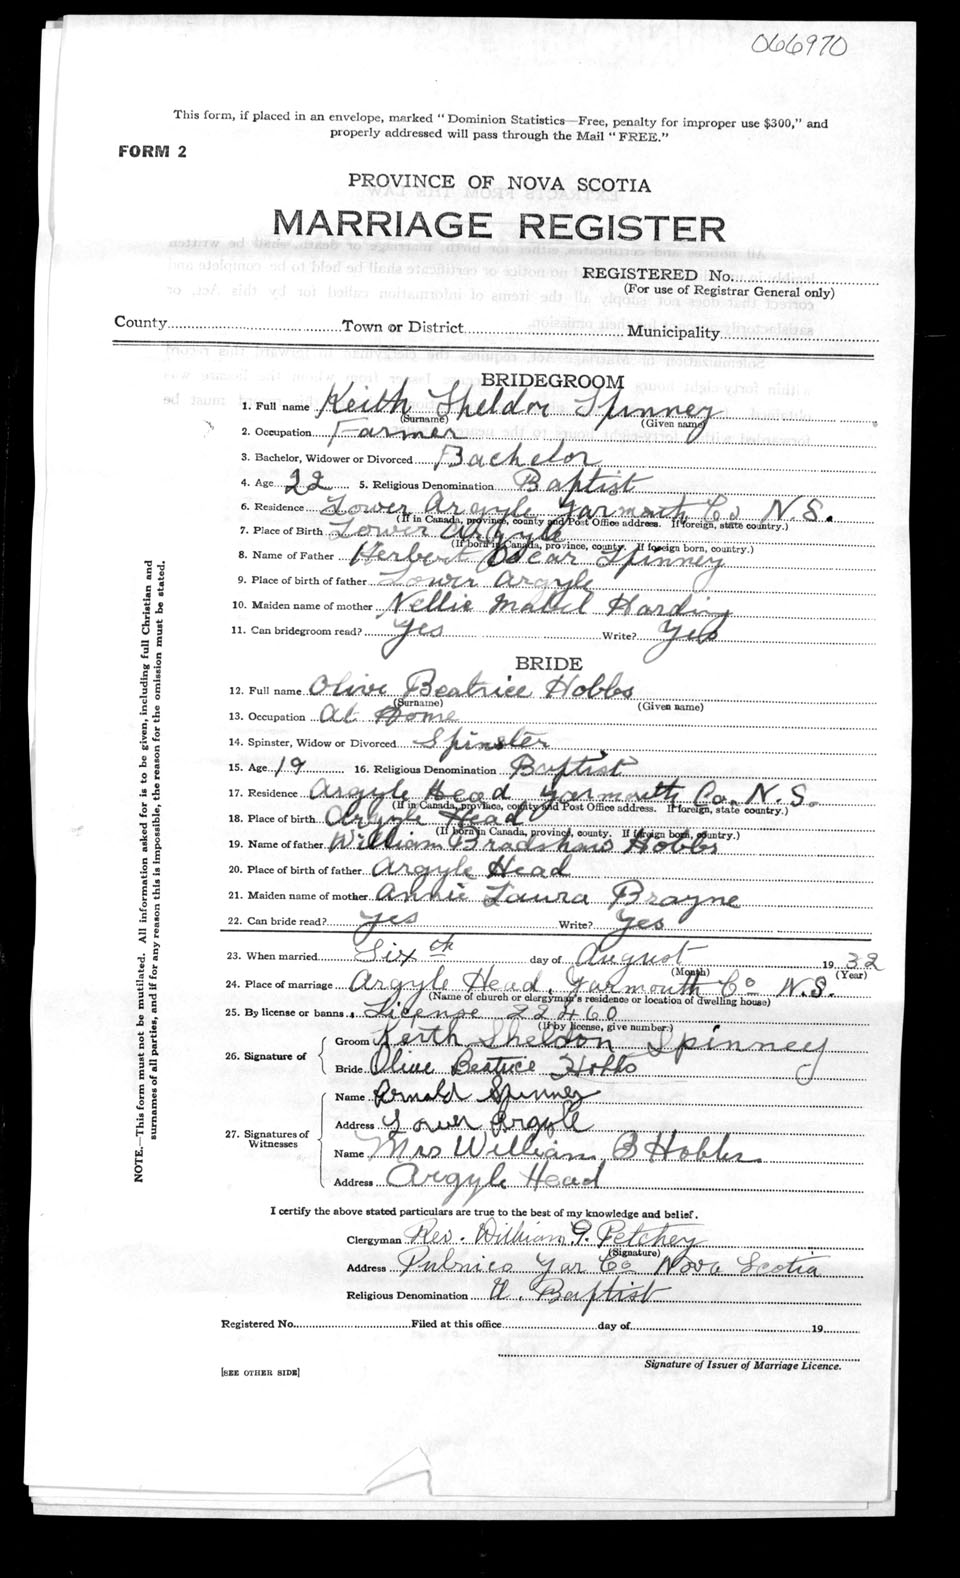 066970
This form, if placed in an envelope, marked "Dominion Statistics—Free, penalty for improper use $300," and
properly addressed will pass through the Mail "FREE."
FORM 2
PROVINCE OF NOVA SCOTIA
MARRIAGE REGISTER
REGISTERED No.
(For use of Registrar General only)
County Town or District Municipality
BRIDEGROOM
1. Full name Keith Sheldon Spinney
(Surname) (Given name)
2. Occupation Farmer
3. Bachelor, Widower or Divorced Bachelor
4. Age 22 5. Religious Denomination Baptist
6. Residence Lower Argyle Yarmouth Co N.S.
(If in Canada, province, county and Post Office address. If foreign, state country.)
7. Place of Birth Lower Argyle
(If born in Canada, province, county. If foreign born, country.)
8. Name of Father Herbert Oscar Spinney
9. Place of birth of father Lower Argyle
10. Maiden name of mother Nellie Mabel Harding
11. Can bridegroom read? Yes Write? Yes
BRIDE
12. Full name Olive Beatrice Hobbs
(Surname) (Given name)
13. Occupation At Home
14. Spinster, Widow or Divorced Spinster
15. Age 19 16. Religious Denomination Baptist
17. Residence Argyle Head Yarmouth Co. N.S.
(If in Canada, province, county and Post Office address. If foreign, state country.)
18. Place of birth Argyle Head
(If born in Canada, province, county. If foreign born, country.)
19. Name of father William Bradshaw Hobbs
20. Place of birth of father Argyle Head
21. Maiden name of mother Annie Laura Brayne
22. Can bride read? Yes Write? Yes
23. When married Sixth day of August 1932
(Month) (Year)
24. Place of marriage Argyle Head, Yarmouth Co N.S.
(Name of church or clergyman's residence or location of dwelling house)
25. By license or banns License 22460
(If by license, give number.)
26. Signature of
Groom Keith Sheldon Spinney
Bride Olive Beatrice Hobbs
27. Signatures of Witnesses
Name Arnold Spinney
Address Lower Argyle
Name Mrs William B Hobbs
Address Argyle Head
I certify the above stated particulars are true to the best of my knowledge and belief.
Clergyman Rev. William G. Petchey
(Signature)
Address Pubnico Yar Co Nova Scotia
Religious Denomination U. Baptist
Registered No. Filed at this office day of 19
Signature of Issuer of Marriage Licence.
[SEE OTHER SIDE]
NOTE.—This form must not be mutilated. All information asked for is to be given, including full Christian and
surnames of all parties, and if for any reason this is impossible, the reason for the omission must be stated.